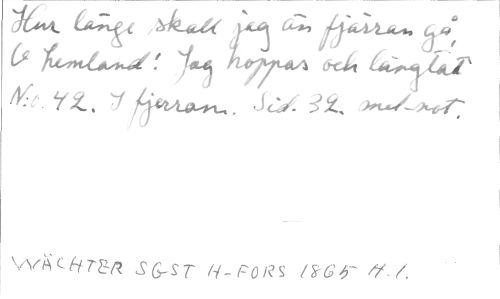 Hur länge skall jag än fjärran gå,
O hemland! Jag hoppas och längtat
N:o. 42. I fjerran. Sid. 32. mel-not.
WÄCHTER SGST H-FORS 1865 H.1.